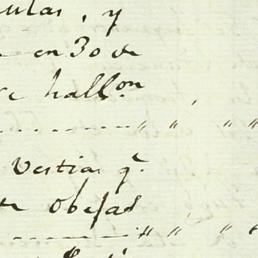 ulas, y
en 30 de
hallon
" " " "
Vestias q.e
Obejas
" " " "